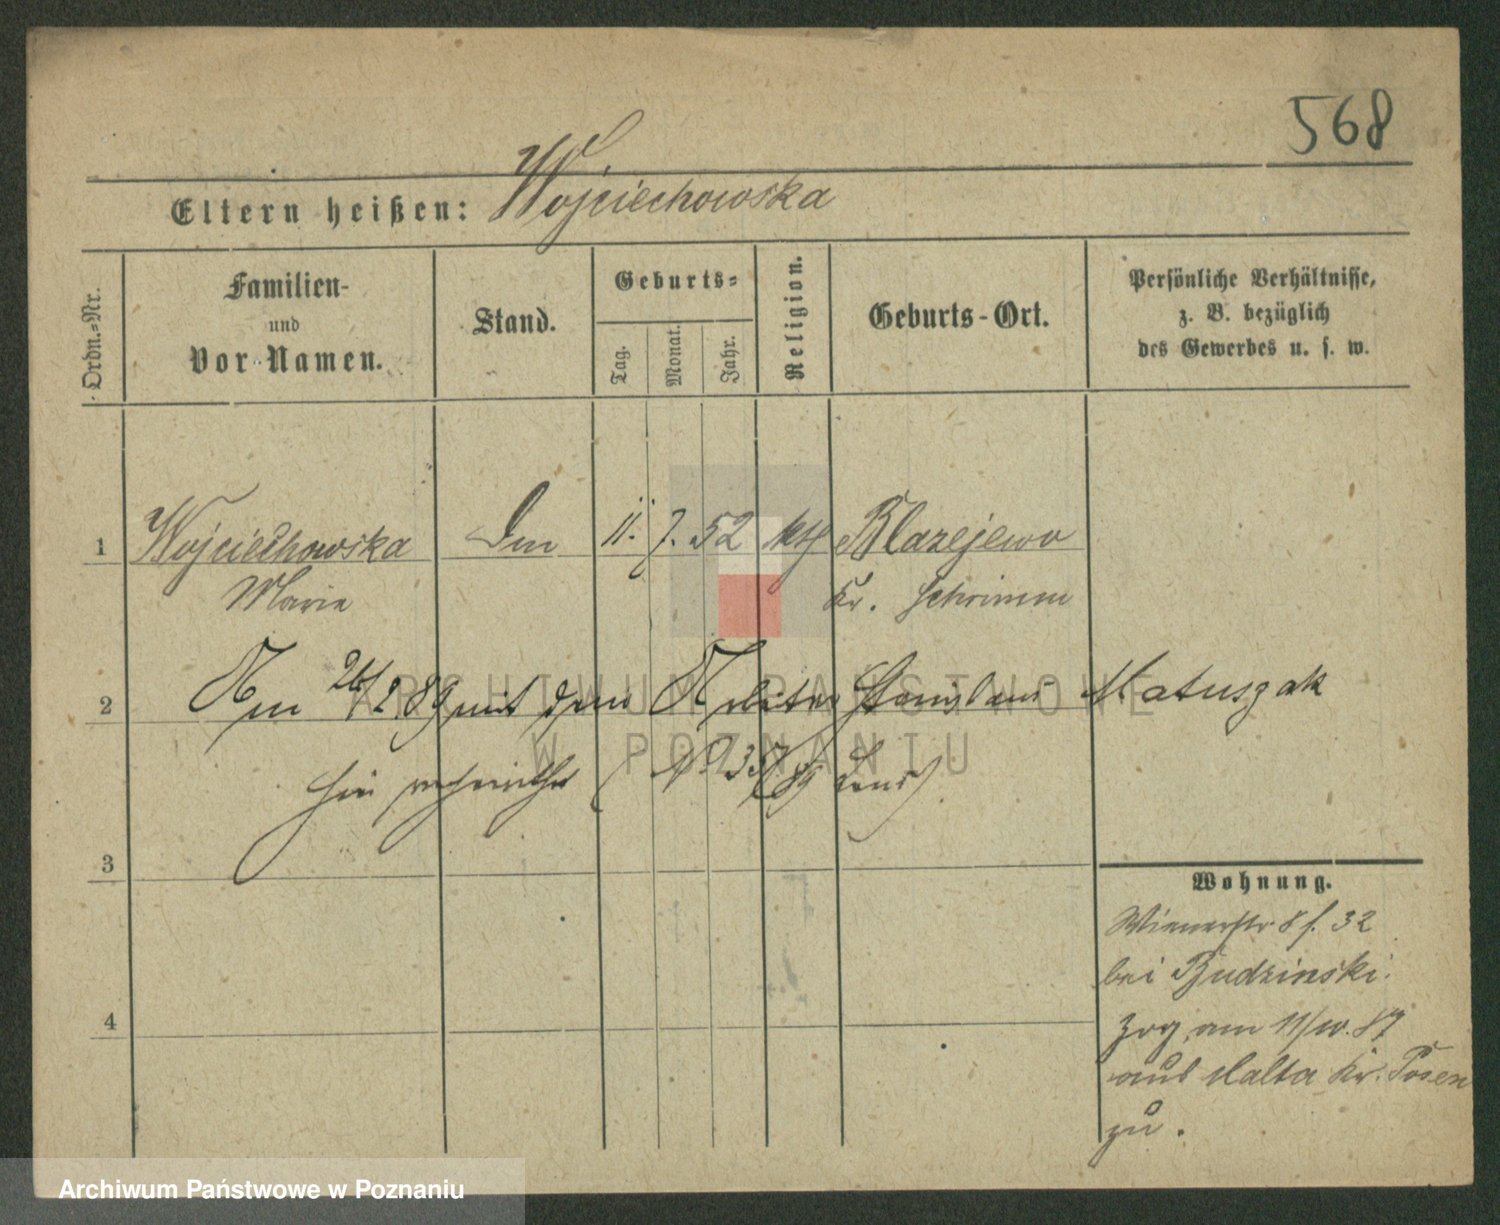 568
Eltern heißen: Wojciechowska
Ordn.-Nr.
Familien-
und
Vor-Namen.
Stand.
Geburts-
Tag.
Monat.
Jahr.
Religion.
Geburts-Ort.
Persönliche Verhältnisse,
z. B. bezüglich
des Gewerbes u. s. w.
1 Wojciechowska 11. 7. 52 kth Blazejewo
Marie Kr. Schrimm
2 Am 26/2 89 mit dem Arbeiter Stanislaus Matuszak
hier verheirathet
3
Wohnung.
Wienerstr 8 f. 32
bei Budzinski.
4
Zog am 11/10. 87
aus Malta Kr. Posen
zu.
ARCHIWUM PAŃSTWOWE
W POZNANIU
Archiwum Państwowe w Poznaniu